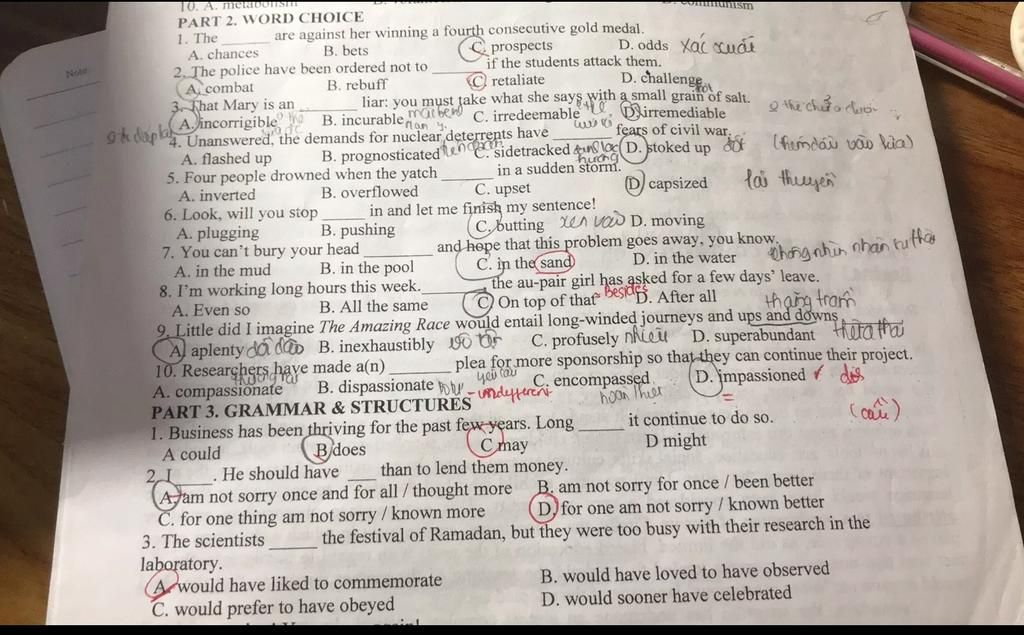 10. A. metabolism
PART 2. WORD CHOICE
1. The ______ are against her winning a fourth consecutive gold medal.
A. chances B. bets C. prospects D. odds xác suất
2. The police have been ordered not to ______ if the students attack them.
A. combat B. rebuff C. retaliate D. challenge
3. That Mary is an ______ liar: you must take what she says with a small grain of salt.
A. incorrigible B. incurable C. irredeemable D. irremediable
4. Unanswered, the demands for nuclear deterrents have ______ fears of civil war.
A. flashed up B. prognosticated C. sidetracked D. stoked up (thêm dầu vào lửa)
5. Four people drowned when the yatch ______ in a sudden storm.
A. inverted B. overflowed C. upset D. capsized lái thuyền
6. Look, will you stop ______ in and let me finish my sentence!
A. plugging B. pushing C. butting xen vào D. moving
7. You can't bury your head ______ and hope that this problem goes away, you know.
A. in the mud B. in the pool C. in the sand D. in the water
8. I'm working long hours this week. ______ the au-pair girl has asked for a few days' leave.
A. Even so B. All the same C. On top of that Besides D. After all thăng trầm
9. Little did I imagine The Amazing Race would entail long-winded journeys and ups and downs
A. aplenty dồi dào B. inexhaustibly vô tận C. profusely nhiều D. superabundant thừa thãi
10. Researchers have made a(n) ______ plea for more sponsorship so that they can continue their project.
A. compassionate B. dispassionate C. encompassed D. impassioned
(cầu)
PART 3. GRAMMAR & STRUCTURES
1. Business has been thriving for the past few years. Long ______ it continue to do so.
A could B does C may D might
2. I ______. He should have ____ than to lend them money.
A. am not sorry once and for all / thought more B. am not sorry for once / been better
C. for one thing am not sorry / known more D. for one am not sorry / known better
3. The scientists ______ the festival of Ramadan, but they were too busy with their research in the
laboratory.
A. would have liked to commemorate B. would have loved to have observed
C. would prefer to have obeyed D. would sooner have celebrated